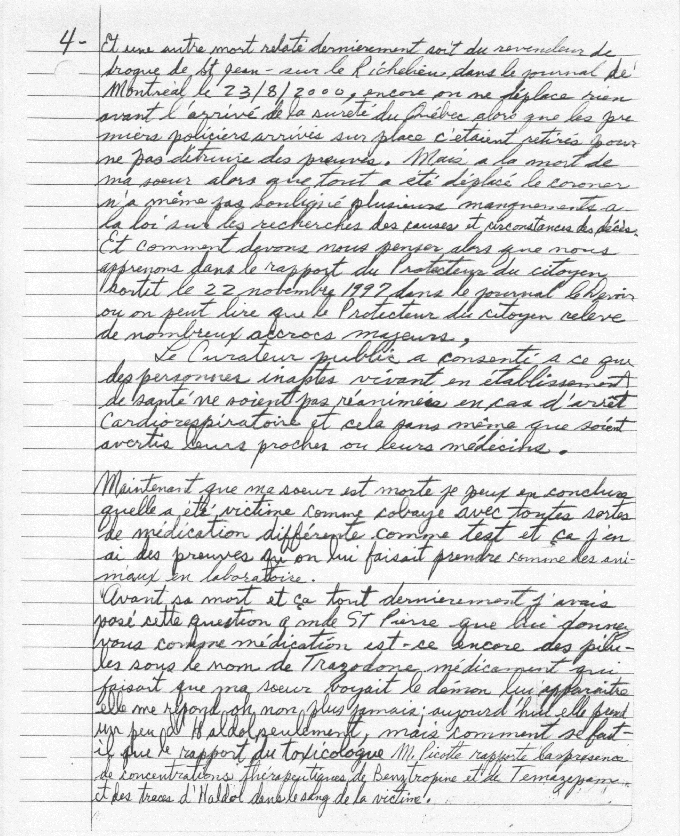 4- Et une autre mort relaté dernierement soit du revendeur de
drogue de St Jean-sur le Richelieu, dans le journal de
Montréal le 23/8/2000, encore on ne déplace rien
avant l'arrivé de la sureté du Québec alors que les pre
miers policiers arrivés sur place c'étaient retirés pour
ne pas détruire des preuves. Mais a la mort de
ma soeur alors que tout a été déplacé le coroner
n'a même pas souligné plusieurs manquements a
la loi sur les recherches des causes et circonstances des décès.
Et comment devons nous penser alors que nous
apprenons dans le rapport du Protecteur du citoyen
sortit le 22 novembre 1997 dans le journal le Devoir
ou on peut lire que le Protecteur du citoyen releve
de nombreux accrocs majeurs,
Le Curateur public a consenti a ce que
des personnes inaptes vivant en établissement
de santé ne soient pas réanimées en cas d'arrêt
Cardiorespiratoire et cela sans même que soient
avertis leurs proches ou leurs médecins.
Maintenant que ma soeur est morte je peux en conclure
quelle a été victime comme cobaye avec toutes sortes
de médication différente comme test et ça j'en
ai des preuves qu'on lui faisait prendre comme des ani-
maux en laboratoire.
Avant sa mort et ça tout dernierement j'avais
posé cette question a mde ST Pierre que lui donnez
vous comme médication est-ce encore des pilu-
les sous le nom de Trazodone, médicament qui
faisait que ma soeur voyait le démon lui apparaitre
elle me répond, oh, non, plus jamais; aujourd'hui elle prend
un peu d'Haldol seulement, mais comment se fait-
il que le rapport du toxicologue M. Picotte rapporte la présence
de concentrations thérapeutiques de Benztropine et de Temazepam
et des traces d'Haldol dans le sang de la victime.